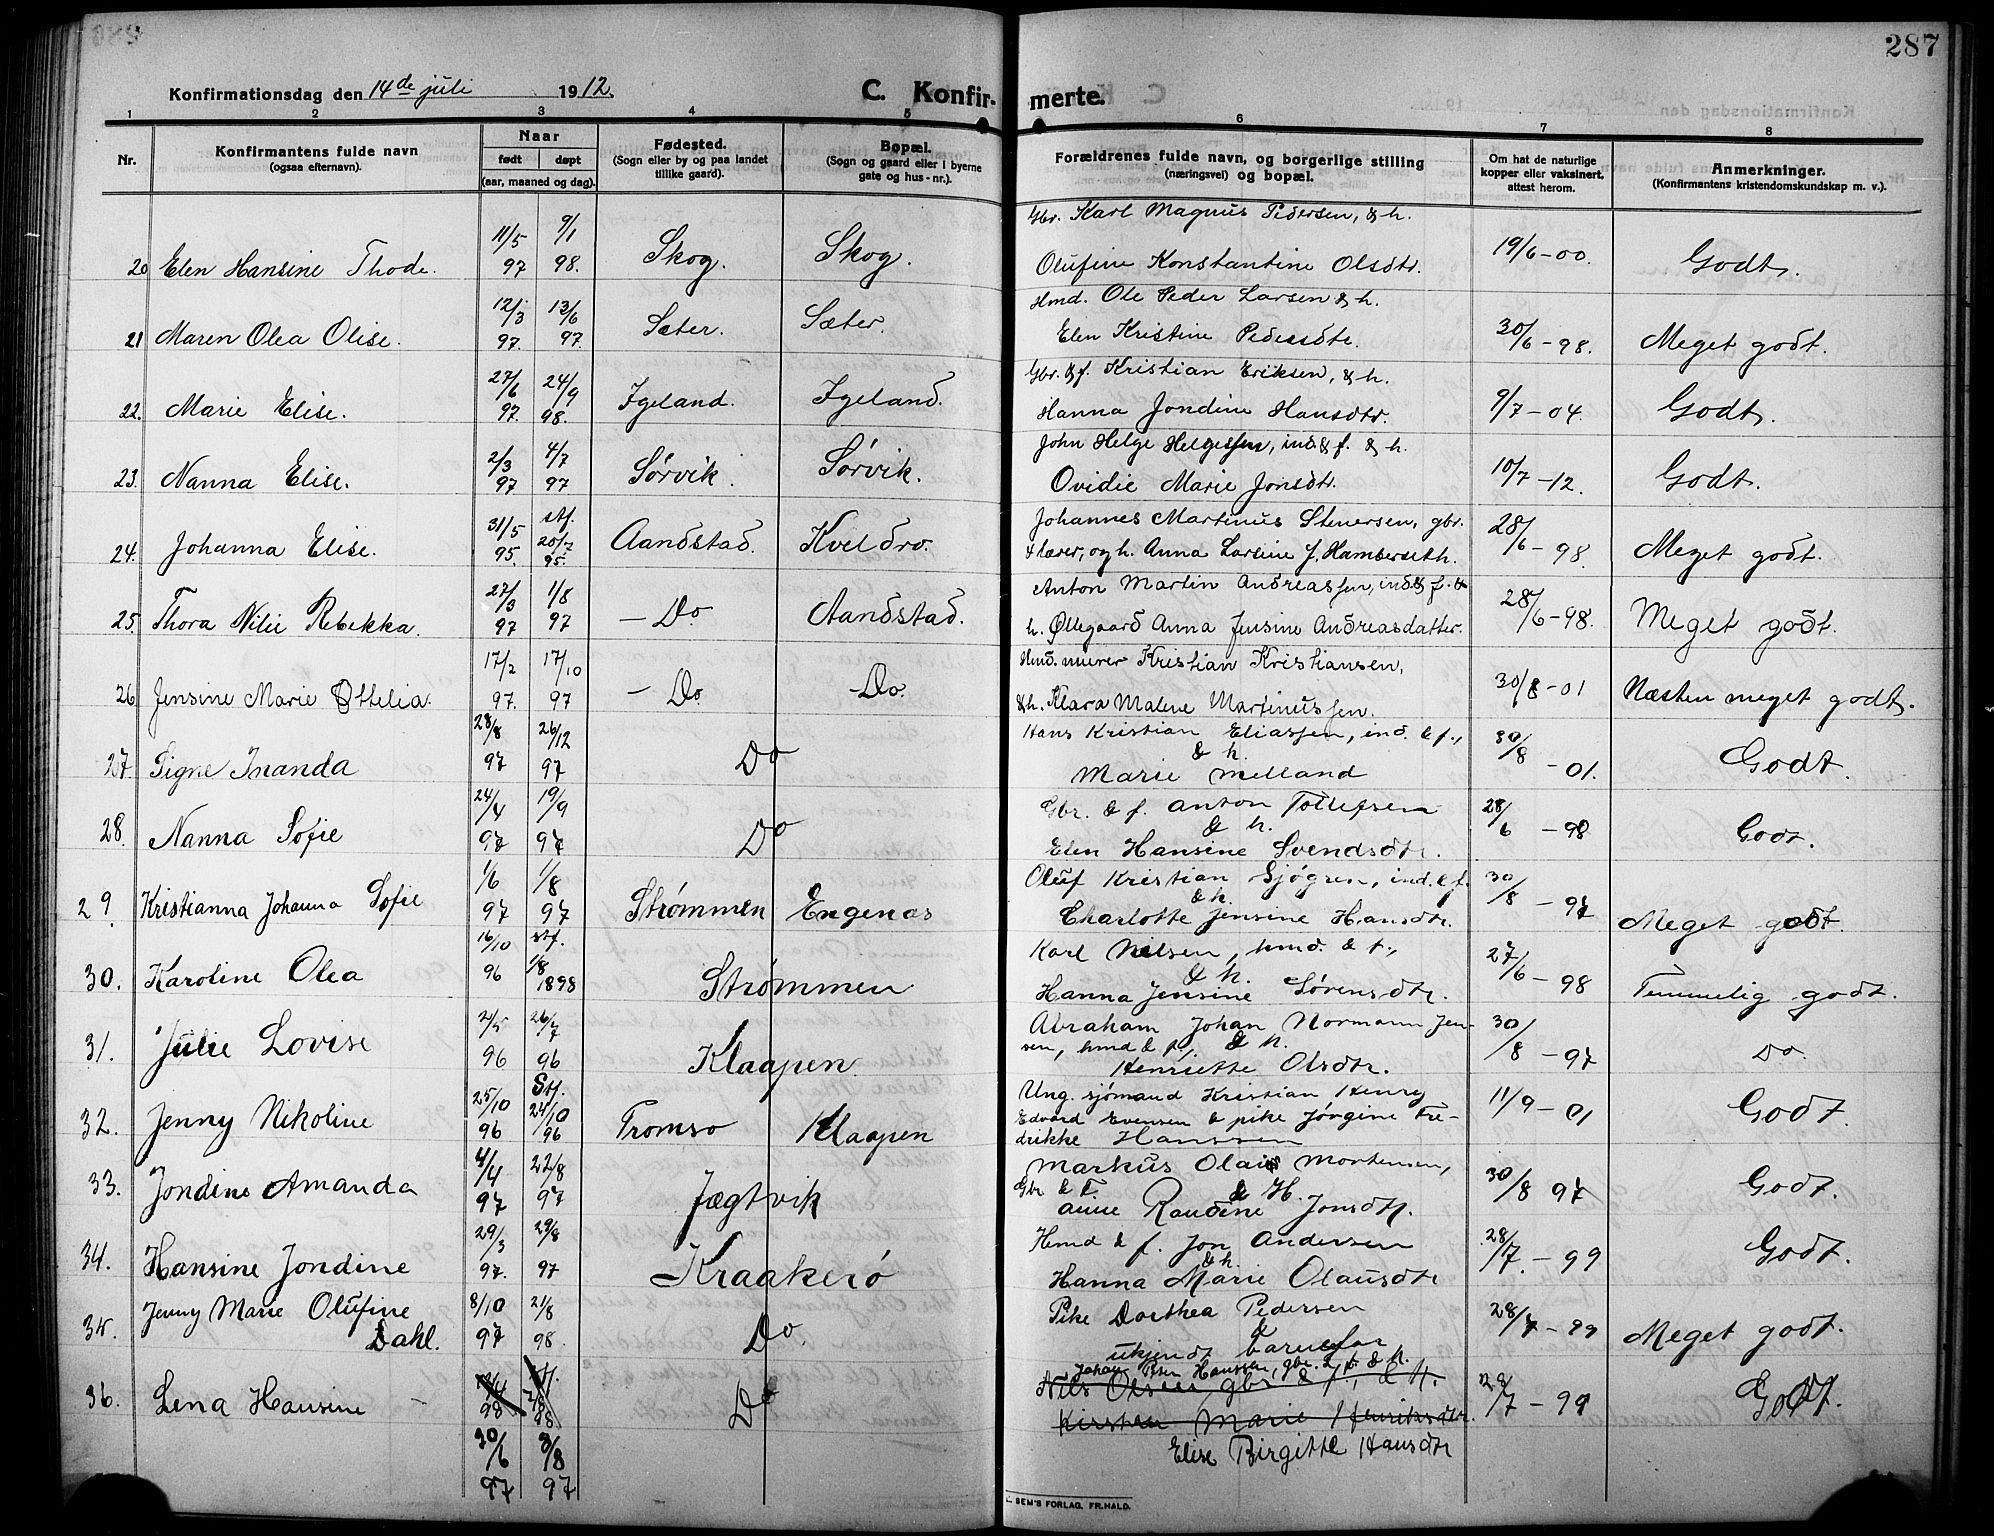 287
Konfirmationsdag den 14de juli 1912.
C. Konfir- merte.
1 2 3 4 5 6 7 8
Nr.
Konfirmantens fulde navn
(ogsaa efternavn).
Naar
født døpt
(aar, maaned og dag).
Fødested.
(Sogn eller by og paa landet
tillike gaard).
Bopæl.
(Sogn og gaard eller i byerne
gate og hus-nr.).
Forældrenes fulde navn, og borgerlige stilling
(næringsvei) og bopæl.
Om hat de naturlige
kopper eller vaksinert,
attest herom.
Anmerkninger.
(Konfirmantens kristendomskundskap m. v.).
Gbr. Karl Magnus Pedersen, & h.
20 Elen Hansine Thode. 11/5 97 9/1 98. Skog. Skog. Olufine Konstantine Olsdtr. 19/6-00. Godt.
Hmd. Ole Peder Larsen & h.
21 Maren Olea Olise. 12/3 97. 13/6 97. Sæter. Sæter. Elen Kristine Pedersdtr. 30/6-98. Meget godt.
Gbr. & f. Kristian Eriksen, & h.
22. Marie Elise. 27/6 97. 24/9 98. Igeland. Igeland. Hanna Jondine Hansdtr. 9/7-04. Godt.
John Helge Helgesen, ind. & f. & h.
23. Nanna Elise. 2/3 97 4/7 97 Sørvik. Sørvik. Ovidie Marie Jonsdtr. 10/7-12. Godt.
Johannes Martinus Stenersen, gbr.
24. Johanna Elise. 31/5 95. stf. 20/7 95. Aandstad. Kveldro. & lærer, og h. Anna Lorline f. Hamberseth. 28/6-98. Meget godt.
Anton Martin Andreassen, ind. & f. &
25. Thora Nilie Rebekka. 27/3 97 1/8 97 - Do Aandstad. h. Øllegaard Anna Jensine Andreasdatter. 28/6-98. Meget godt.
Hmd. murer Kristian Kristiansen,
26 Jensine Marie Ottelia. 17/2 97. 17/10 97 - Do. -Do. & h. Klara Malene Martinussen. 30/8-01 Næsten meget godt.
Hans Kristian Eliassen, ind. & f.,
& h.
27. Signe Inanda 28/8 97 26/12 97 Do Marie Melland 30/8-01. Godt.
Gbr. & f. Anton Tollefsen
& h.
28. Nanna Sofie 24/4 97 19/9 97 Do Elen Hansine Svendsdtr. 28/6-98 Godt.
Oluf Kristian Sjøgren, ind. & f.
& h.
29. Kristianna Johanna Sofie 1/6 97 1/8 97 Strømmen Engenæs Charlotte Jensine Hansdtr. 30/8-97 Meget godt.
Karl Nilsen, hmd. & f.,
& h.
30. Karoline Olea 16/10 96 stf. 1/8 1898 Strømmen Hanna Jensine Sørensdtr. 27/6-98 Temmelig godt.
Abraham Johan Normann Jen-
sen, hmd & f., & h.
31. Julie Lovise 2/5 96 26/7 96 Klaapen Henriette Olsdtr. 30/8-97 Do.
Ung. sjømand Kristian Henry
Edvard Evensen & pike Jørgine Fre-
32. Jenny Nikoline 25/10 96 Stf. 24/10 96 Tromsø Klaapen drikke Hanssen 11/9-01 Godt.
Markus Olai Mortensen,
Gbr & F. & H.
33. Jondine Amanda 4/4 97 22/8 97 Jægtvik Anne Raudine Jonsdtr. 30/8 97 Godt.
Hmd & f. Jon Andersen
& h.
34. Hansine Jondine 29/3 97. 29/8 97 Kraakerø Hanna Marie Olausdtr 28/7.-99 Godt.
Pike Dorthea Pedersen
&
35. Jenny Marie Olufine Dahl. 8/10 97 21/8 98. Do. ukjendt barnefar 28/7-99 Meget godt.
Johan Peter Hanssen, gbr. & f. & h.
Nils Olsen, gbr & f., & H.
36. Lena Hansine 98 98 Do Kirsten Marie Henriksdtr. 28/7-99 Godt.
30/6 97 8/8 97 Elise Birgitte Hansdtr
SEM'S FORLAG, FR.HALD.